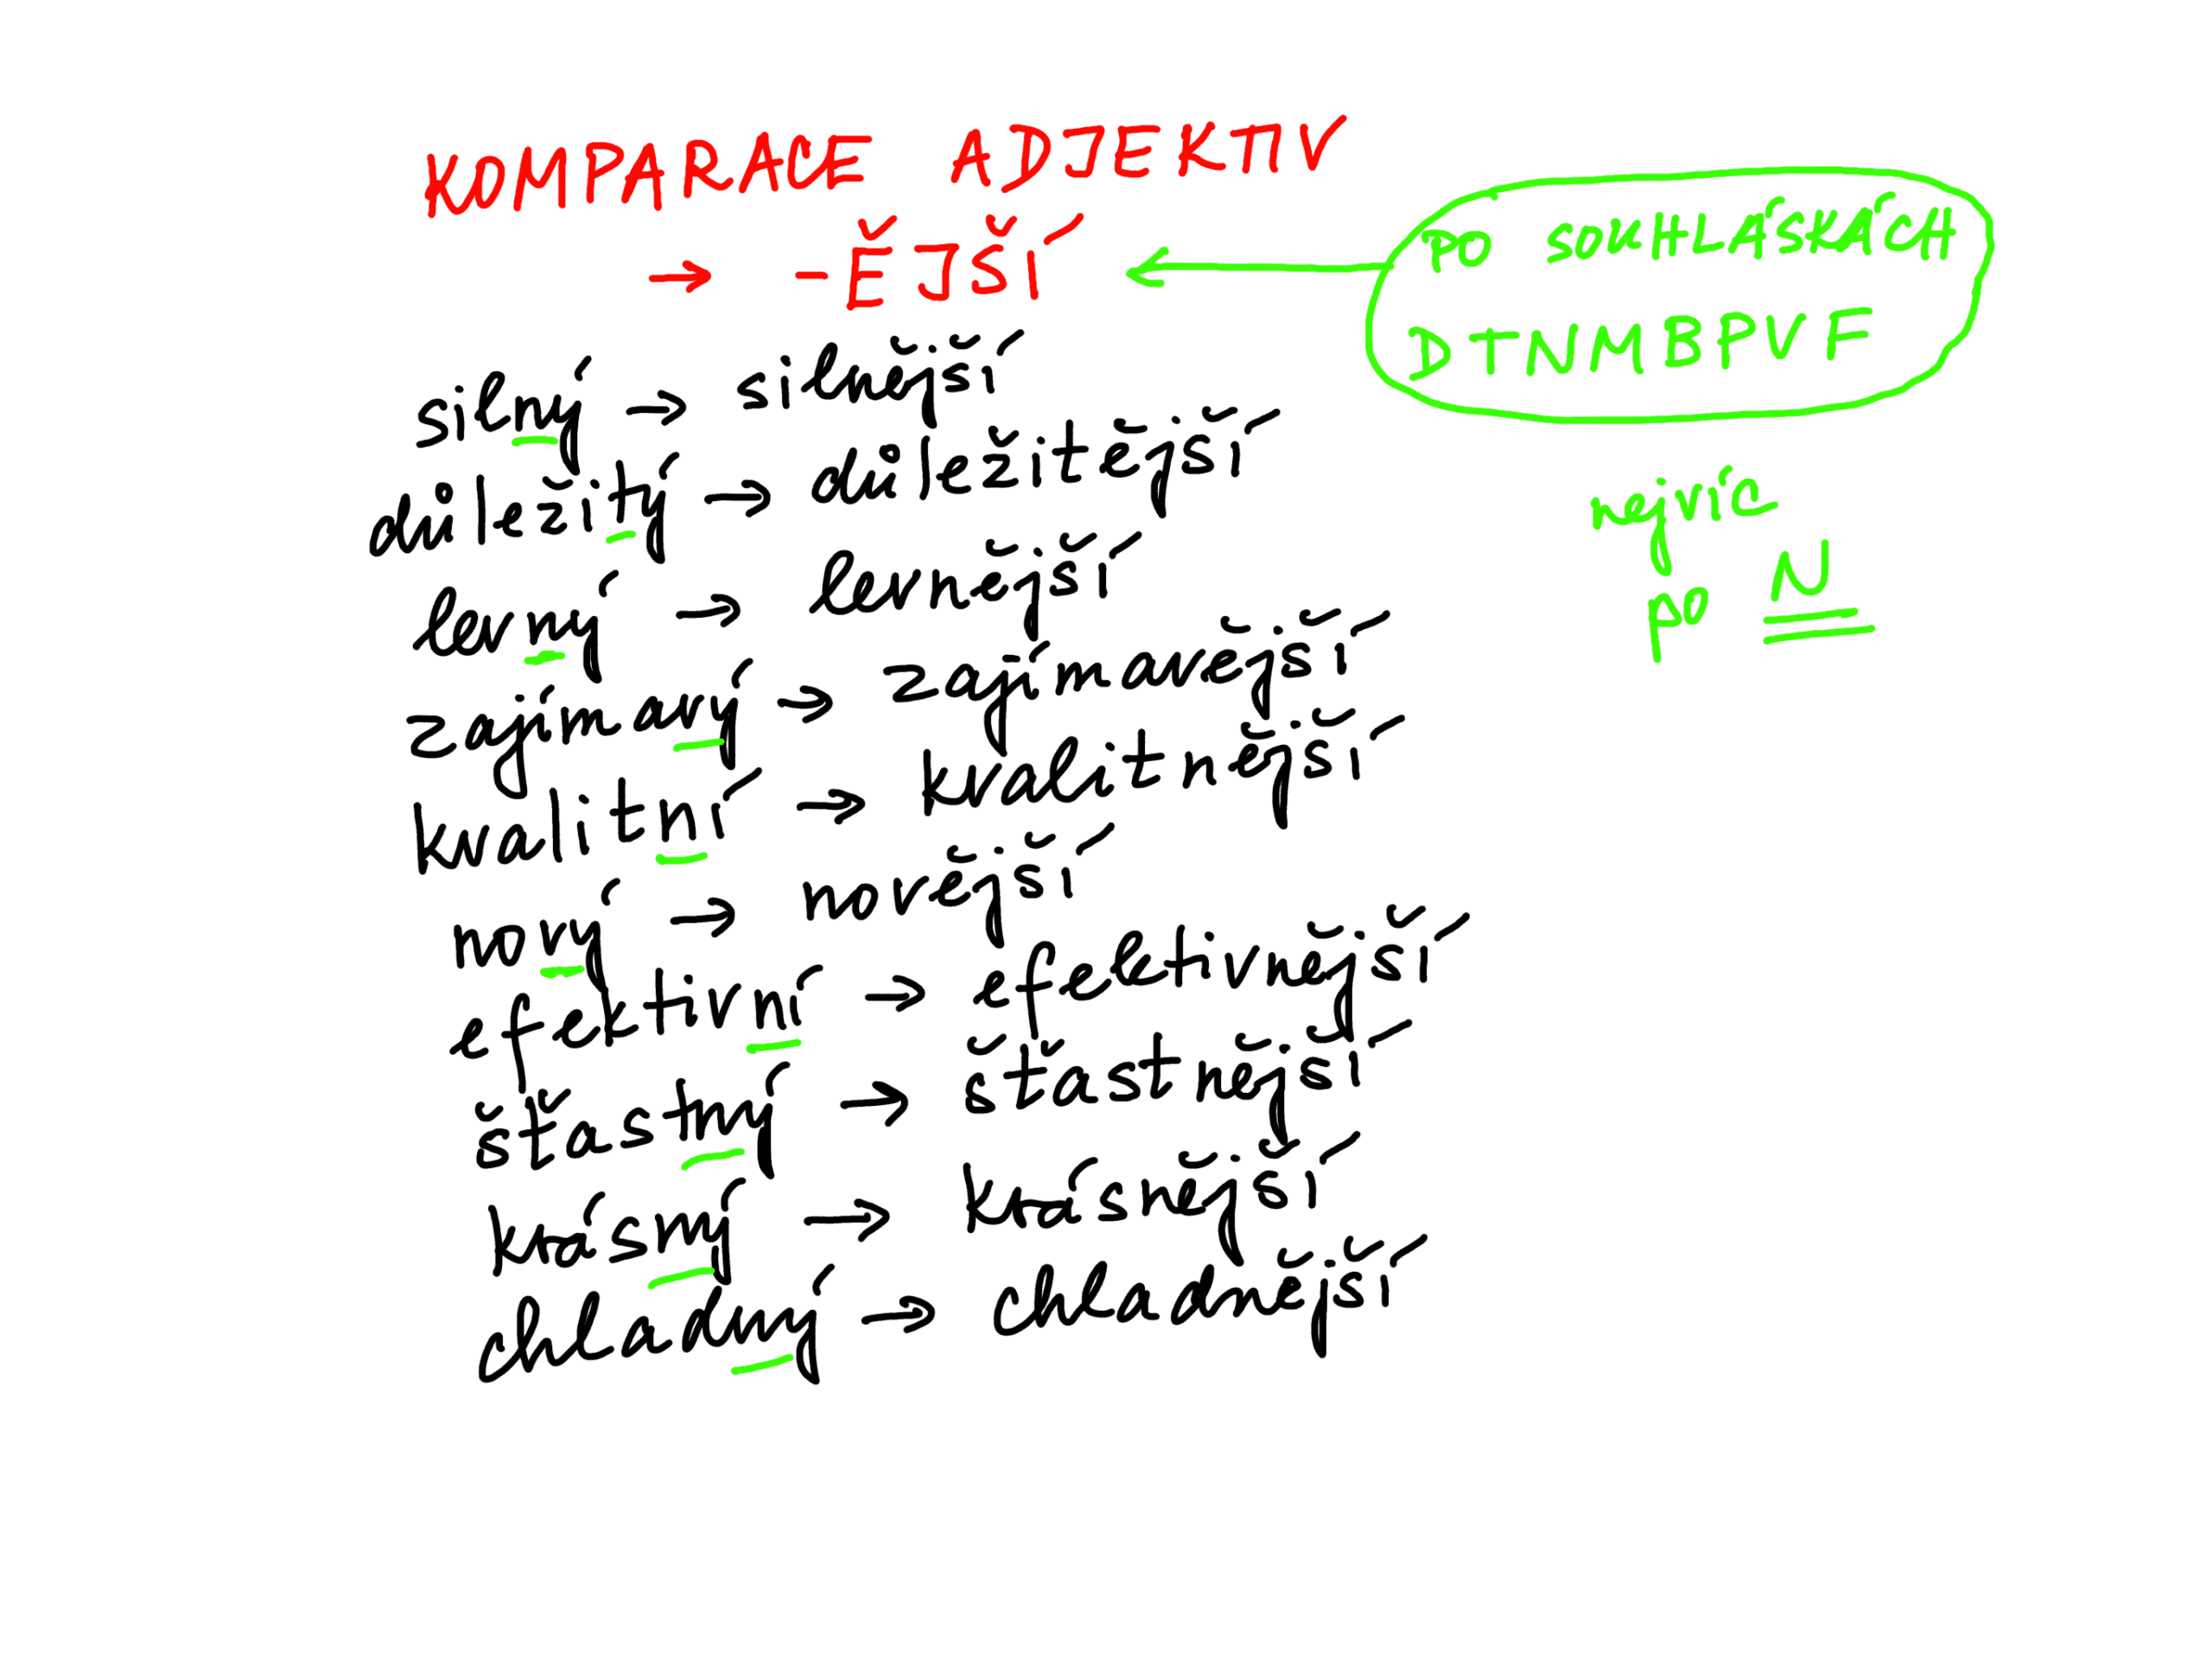 KOMPARACE ADJEKTIV
→ -ĚJŠÍ
PO SOUHLÁSKÁCH
DTNMBPVF
nejvíc
po N
silný → silnější
důležitý → důležitější
levný → levnější
zajímavý → zajímavější
kvalitní → kvalitnější
nový → novější
efektivní → efektivnější
šťastný → šťastnější
krásný → krásnější
chladný → chladnější